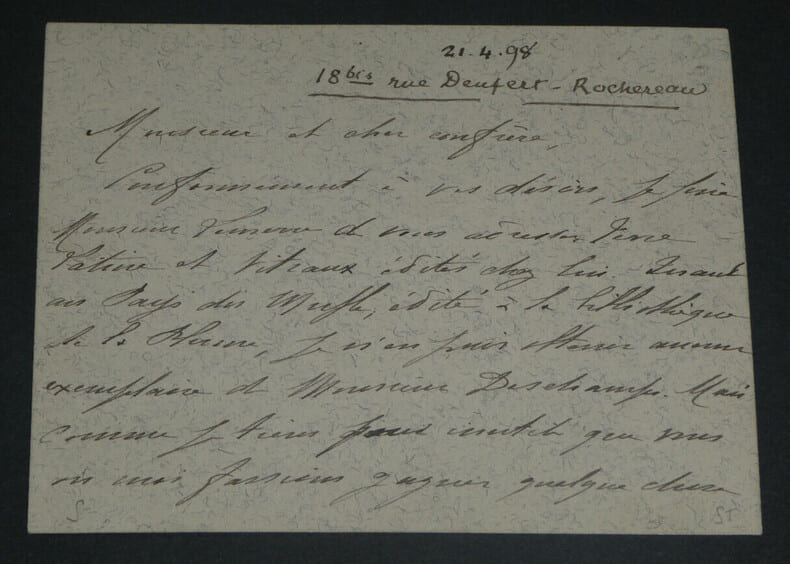 21.4.98
18 bis rue Denfert-Rochereau
Monsieur et cher confrère,
Conformément à vos désirs, je prie
Monsieur Lemerre de vous adresser
Patine et Vitraux édités chez lui. Quant
au Pays des Mufles, édité à la bibliothèque
de la Plume, je n'en puis obtenir aucun
exemplaire de Monsieur Deschamps. Mais
comme je tiens pour inutile que vous
ou moi fassions gagner quelque chose